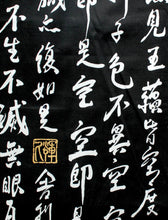 見五蘊皆空度
子色不異空空
即是空空即是
識亦復如是舍利
不生不滅無眼